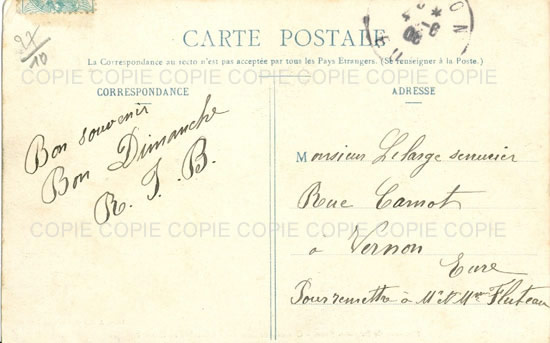 27
10
CARTE POSTALE
La Correspondance au recto n'est pas acceptée par tous les Pays Étrangers. (Se renseigner à la Poste.)
CORRESPONDANCE
ADRESSE
COPIE COPIE COPIE COPIE COPIE COPIE COPIE
Bon souvenir
Bon Dimanche
R. J. B.
Monsieur Lelarge serrurier
Rue Carnot
à Vernon
Eure
Pour remettre à Mr & Mme Fluteau
COPIE COPIE COPIE COPIE COPIE COPIE COPIE